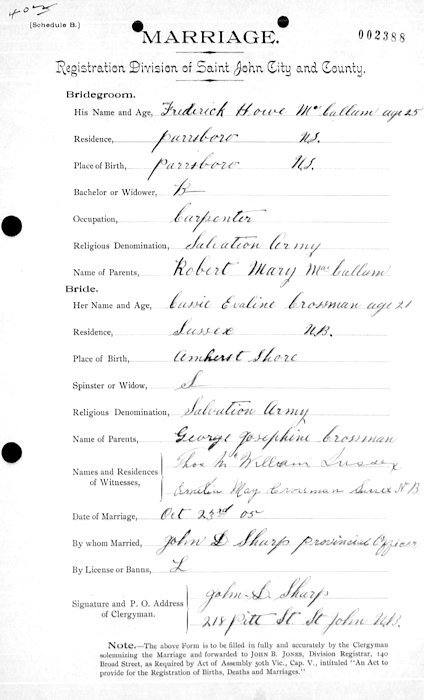 402
(Schedule B.)
MARRIAGE.
002388
Registration Division of Saint John City and County.
Bridegroom.
His Name and Age, Frederick Howe McCallum age 25
Residence, Parrsboro N.S.
Place of Birth, Parrsboro N.S.
Bachelor or Widower, B
Occupation, Carpenter
Religious Denomination, Salvation Army
Name of Parents, Robert Mary MacCallum
Bride.
Her Name and Age, Cassie Evaline Crossman age 21
Residence, Sussex N.B.
Place of Birth, Amherst Shore
Spinster or Widow, S
Religious Denomination, Salvation Army
Name of Parents, George Josephine Crossman
Names and Residences of Witnesses, Thos McWilliam Sussex
Emelia May Crossman Sussex N B
Date of Marriage, Oct 23rd 05
By whom Married, John S Sharp Provincial Officer
By License or Banns, L
Signature and P. O. Address of Clergyman. John S Sharp
218 Pitt St St John N.B.
Note.—The above Form is to be filled in fully and accurately by the Clergyman
solemnizing the Marriage and forwarded to John B. Jones, Division Registrar, 140
Broad Street, as Required by Act of Assembly 50th Vic., Cap. V., intituled "An Act to
provide for the Registration of Births, Deaths and Marriages."